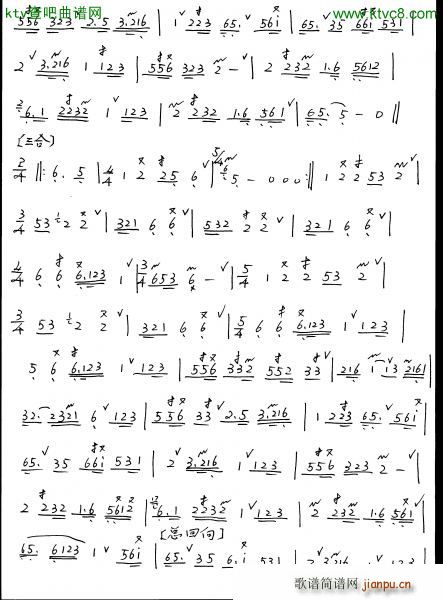 ktv酷吧曲谱网 www.ktvc8.com
556 323 2.5 3.216 | 1 223 65. 56i | 65. 35 66i 531 |
2 3.216 1 123 | 556 323 2 - | 2 232 1.6 5612 |
6.1 2232 1 123 | 2 232 1.6 561 | 65. 5 - 0 ‖
[三合]
2/4 ‖: 6. 5 | 4/4 1 2 25 6 | 5/4 5 - 0 0 0 :‖ 1 2 2 53 2 |
3/4 53 2 2 | 321 6 6 | 532 2 2 | 321 6 6 |
4/4 6 6 6.123 1 | 3/4 653 6 - | 5/4 1 2 2 53 2 |
3/4 53 2 2 | 321 6 6 | 5/4 6 6 6.123 1 123 |
5 6 6.123 1 123 | 556 332 552 33 | 216 1 13 2161 |
32. 2321 6 123 | 556 33 2.5 3.216 | 1 223 65. 56i |
65. 35 66i 531 | 2 3.216 1 123 | 556 323 2 - |
2 232 1.6 5612 | 6.1 2232 1 123 | 2 232 1.6 561 |
[总回向]
65. 6123 1 56i | 65. 35 6.i 531 | 2 3.216 1 123 |
歌谱简谱网
jianpu.cn